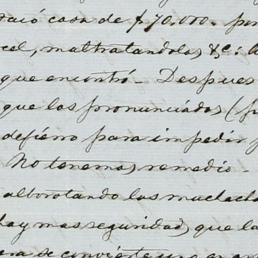 cosa de $70.000. por
maltratandolos, &c:
que encontró. Despues
que los pronunciados (
defiero para impedir
No tenemos remedio.
alborotando los muchach
hay mas seguridad, que la
se convierte